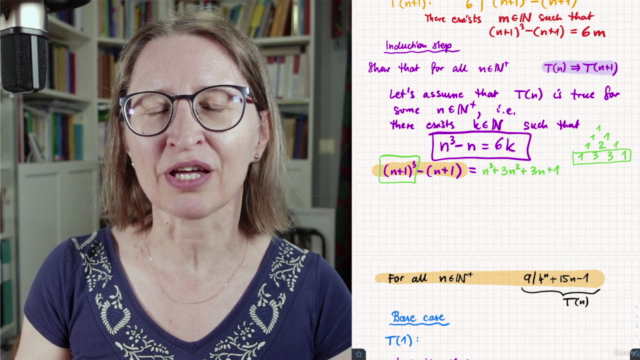 T(n+1): 6 | (n+1)³-(n+1)
There exists m∈ℕ such that
(n+1)³-(n+1) = 6m
Induction step
Show that for all n∈ℕ⁺ T(n) ⇒ T(n+1)
Let's assume that T(n) is true for
some n∈ℕ⁺, i.e.
there exists k∈ℕ such that
n³-n = 6k
1
1 1
1 2 1
1 3 3 1
(n+1)³-(n+1) = n³+3n²+3n+1
For all n∈ℕ⁺ 9/4ⁿ+15n-1
T(n)
Base case
T(1):